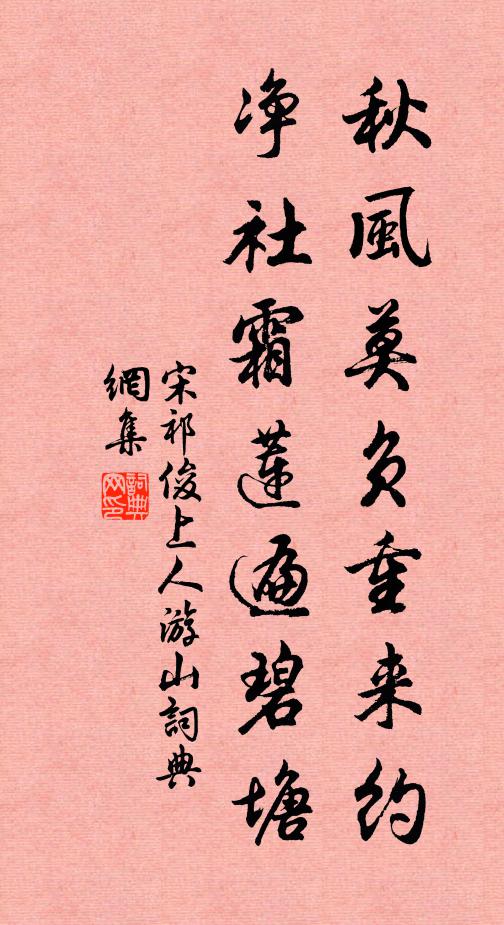 秋風莫負重来約
净社霜蓮遍碧塘
宋祁俊上人游山詞典
網集
詞典
网印